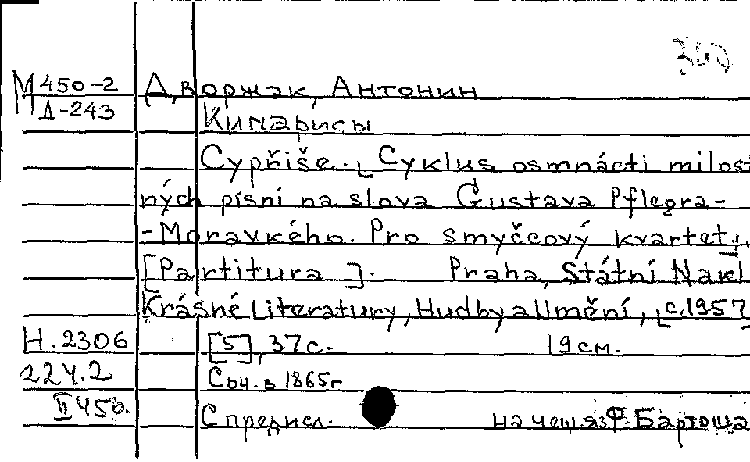 300
М 450-2 Дворжак, Антонин
Д-243
Кипарисы
Cypřiše. [Cyklus osmnácti milost
ných písní na slova Gustava Pflegra-
-Moravkého. Pro smyčcový kvartet].
[Partitura]. Praha, Státní Nakl.
Krásné Literatury, Hudby a Umění, [c.1957
Н. 2306 [5], 37с. 19см.
224.2 Соч. в 1865г
II 45б. С предисл. на чеш.яз. Ф. Бартоша